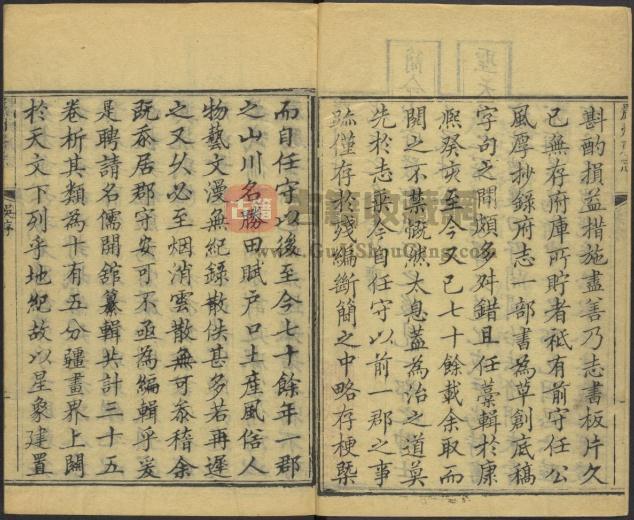 斟酌損益措施盡善乃志書板片久
已無存府庫所貯者祗有前守任公
風厚抄錄府志一部書為草創底稿
字句之間頗多舛錯且任藁輯於康
熙癸亥至今又已七十餘載余取而
閱之不禁慨然太息蓋為治之道莫
先於志乘今自任守以前一郡之事
跡僅存於殘編斷簡之中略存梗槩
而自任守以後至今七十餘年一郡
之山川名勝田賦户口土產風俗人
物藝文漫無紀錄散佚甚多若再遲
之又久必至烟消雲散無可叅稽余
既忝居郡守安可不亟為編輯乎爰
是聘請名儒開舘纂輯共計三十五
卷析其類為十有五分疆畫界上關
於天文下列乎地紀故以星象建置
吳序
古籍
古籍收藏網
www.GuJiShouCang.com